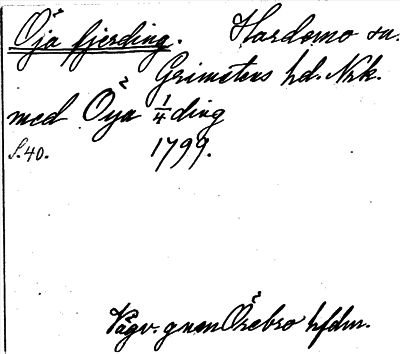 Öja fjerding. Hardemo sn.
Grimstens hd. Nrk.
med Öija 1/4ding
S.40. 1799.
Vägv. gnm Örebro hfdm.